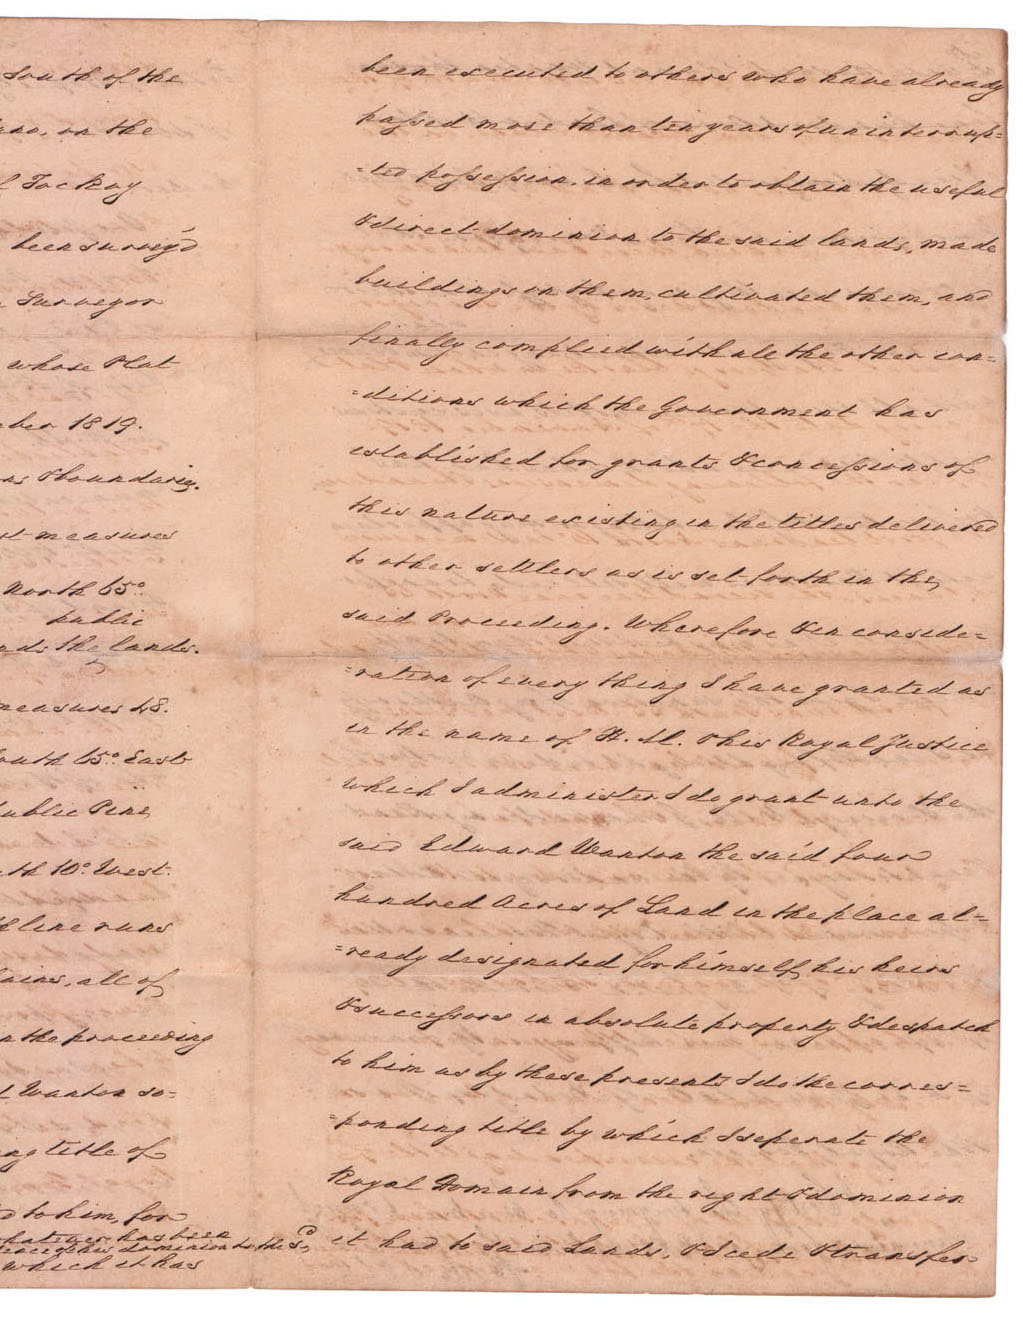 South of the
on the
Tockoy
been survey'd
Surveyor
whose Plat
ber 1819.
boundaries.
measures
North 65°
public
the lands.
measures 48.
South 65° East
Public Pine
10° West.
line runs
all of
the proceeding
Wanton so-
title of
to him, for
whatever has been
his dominion to the Sd
which it has
been executed to others who have already
passed more than ten years of uninterrup=
=ted possession, in order to obtain the useful
& direct dominion to the said lands, made
buildings on them, cultivated them, and
finally complied with all the other con=
=ditions which the Government has
established for grants & concessions of
this nature existing in the titles delivered
to other settlers as is set forth in the
said Proceeding. Wherefore & in conside=
=ration of every thing I have granted as
in the name of H. M. & his Royal Justice
which I administer I do grant unto the
said Edward Wanton the said four
hundred Acres of Land in the place al=
=ready designated for himself, his heirs
& successors in absolute property & despatch
to him as by these presents I do the corres=
=ponding title by which I seperate the
Royal Domain from the right & dominion
it had to said Lands, & I cede & transfer